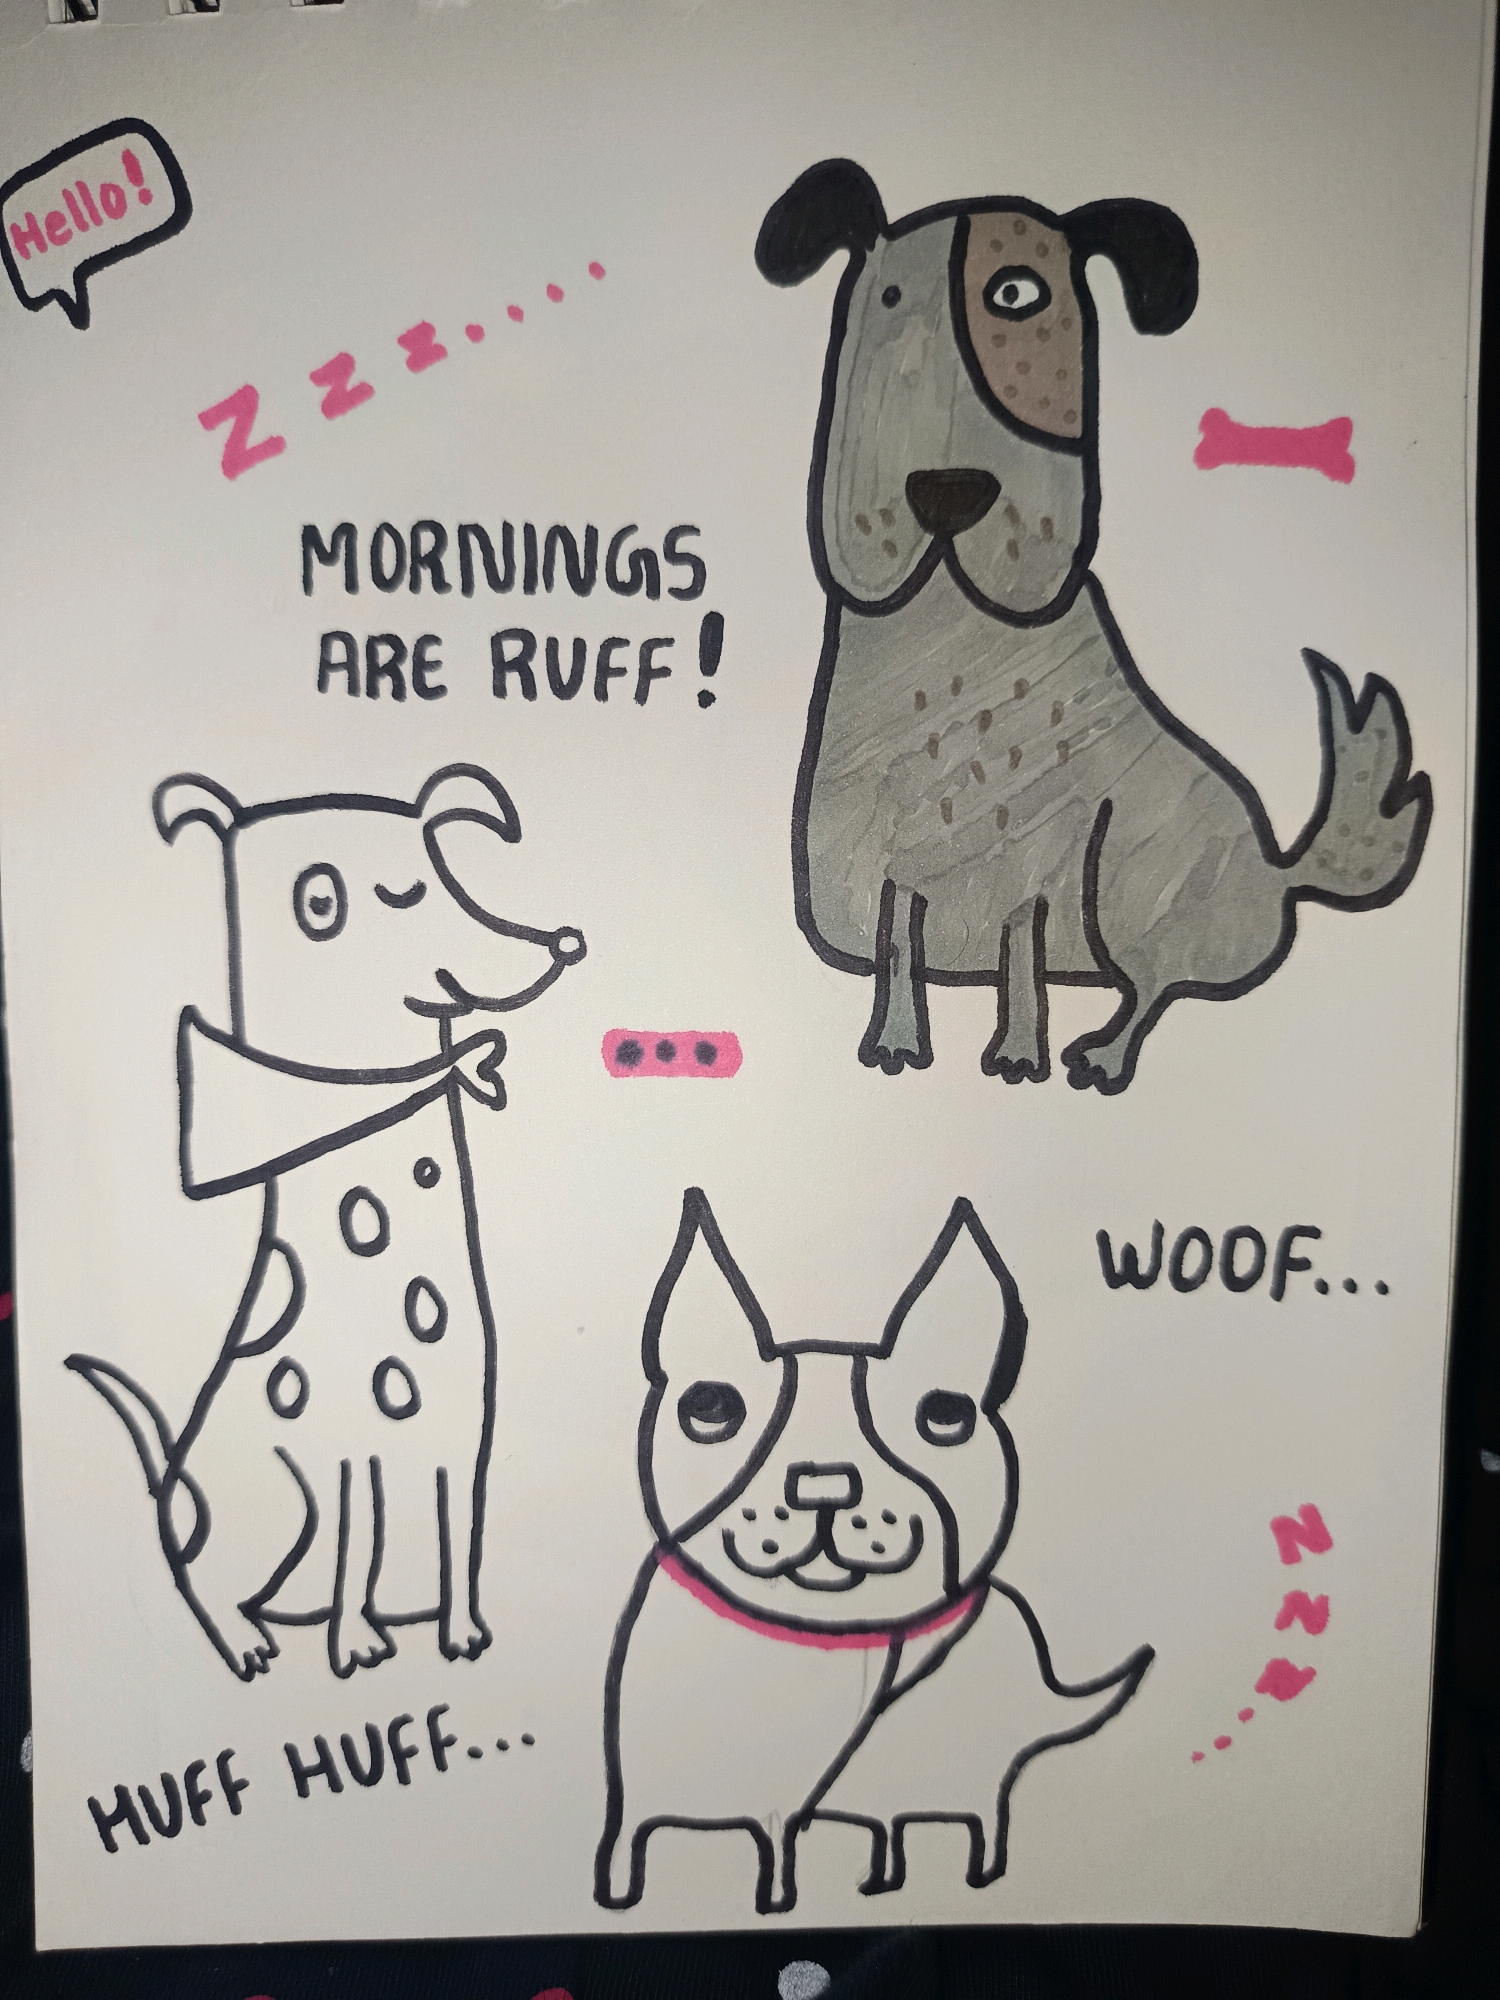 Hello!
Z z z....
MORNINGS
ARE RUFF!
WOOF...
z z z...
HUFF HUFF...